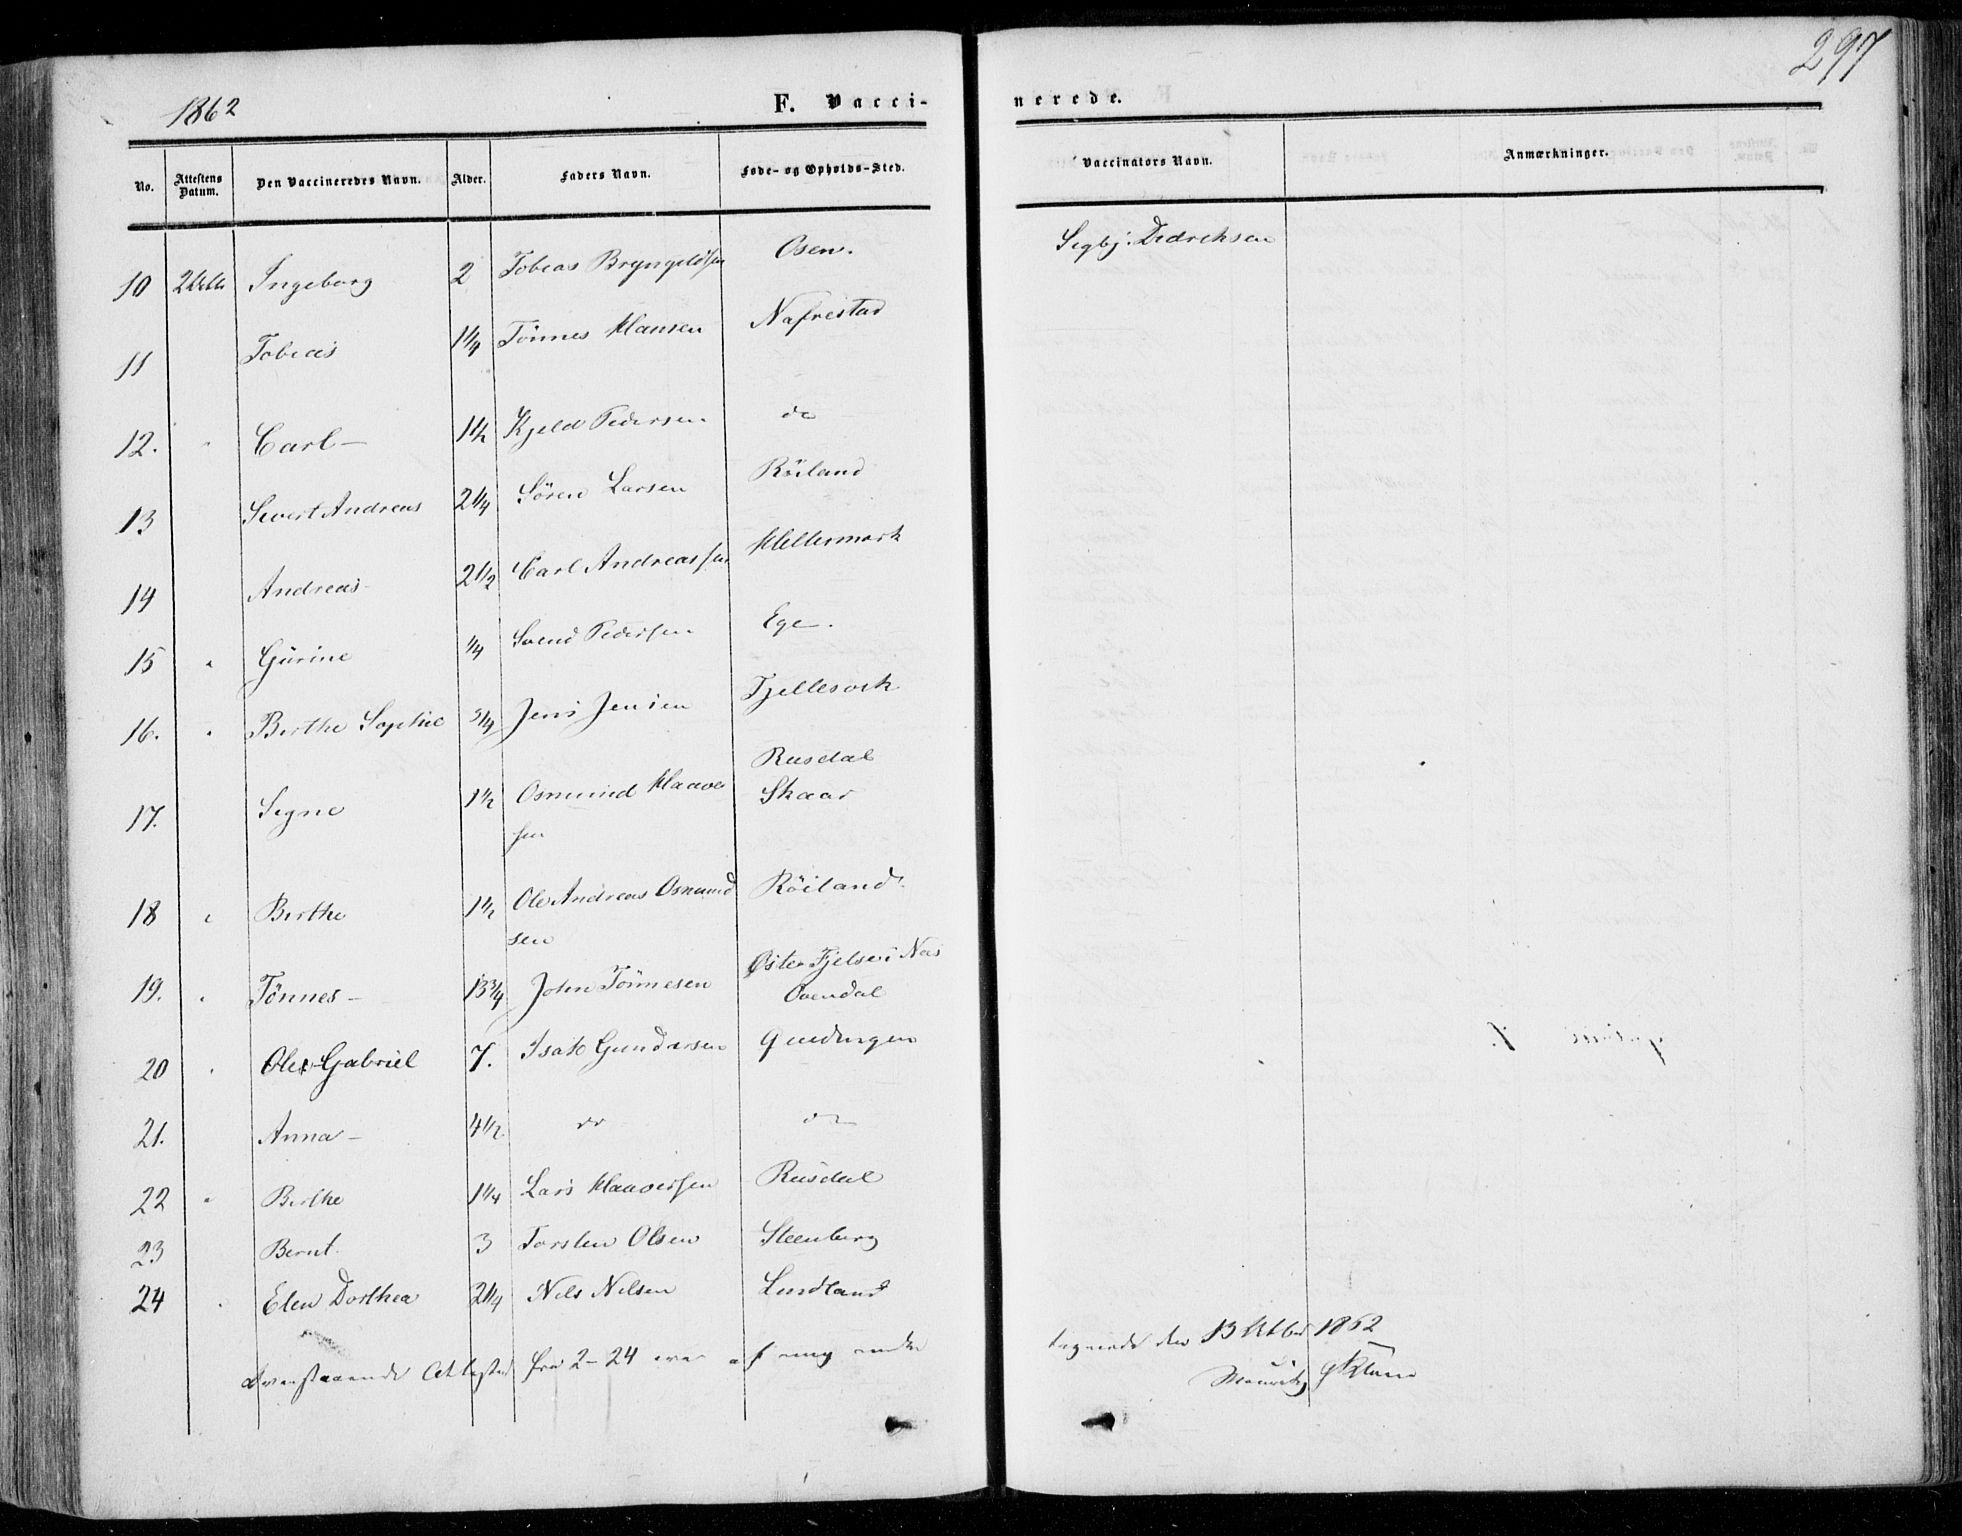 297
1862
F. Vacci-nerede.
No. Attestens Datum. Den Vaccineredes Navn. Alder. Faders Navn. Føde- og Opholds-Sted. Vaccinators Navn. Anmærkninger.
10 Ingeborg 2 Tobias Bryngelssen Osen. Sigbj. Didrichsen
11 Tobias 1 1/4 Tönnes Hansen Nafrestad
12. " Carl - 1 1/2 Kjeld Pedersen do
13 Sivert Andreas 2 1/4 Sören Larsen Röiland
14 Andreas - 2 1/2 Carl Andreassen
15 " Gurine 1/4 Svend Pedersen Ege.
16. " Berthe Sophie 3/4 Jens Jensen
17. Signe 1 1/2 Osmund Haaver
sen Rusdal
Skaar
18 " Berthe 1 1/2 Ole Andreas Osmund
sen Röiland
19. " Tönnes - 13 3/4 John Tönnesen Øster Fjelse i Næs
Ovendal
20 " Ole Gabriel 7. Isak Gundersen Qvedingen
21. Anna - 4 1/2 do do
22 " Berthe 1 1/4 Lars Haaversen Rusdal
23 Bernt. 3 Torsten Olsen Steenberg
24 " Elen Dorthea 2 1/4 Nils Nilsen Lindland
Ovenstaaende Attester fra 2-24 ere af mig under tegnede den 13 Octbr 1862